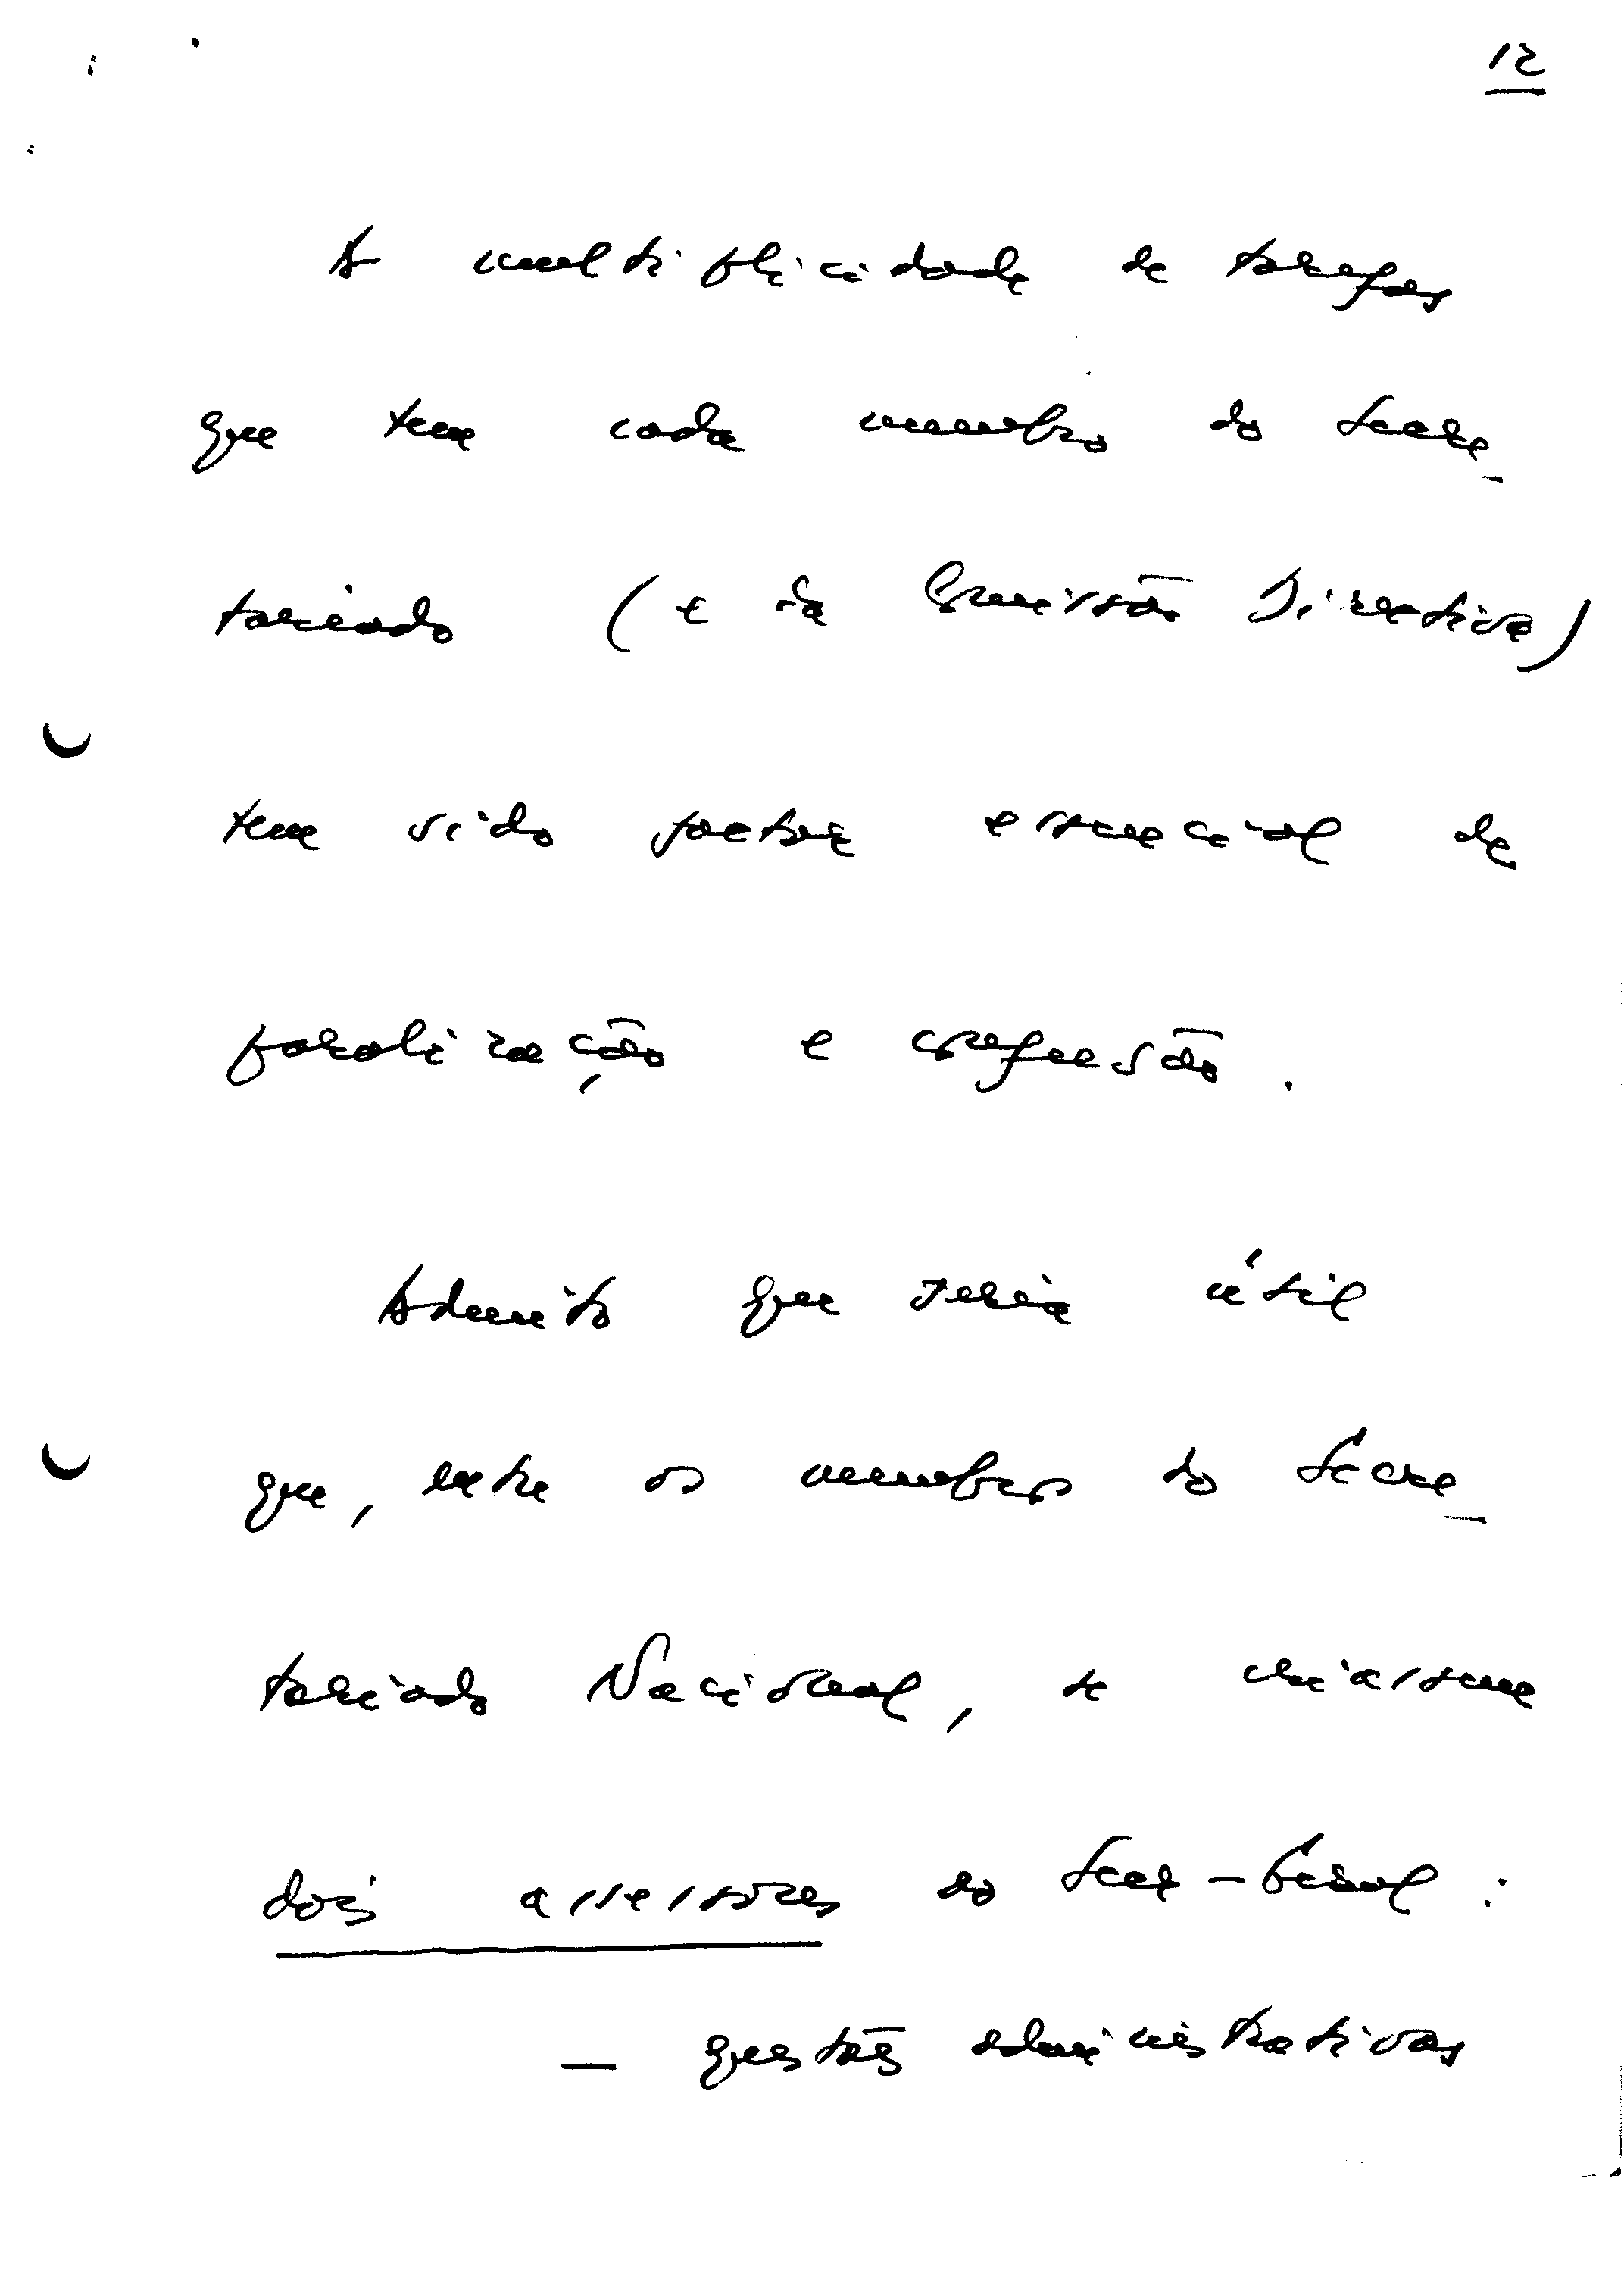 12
A multiplicidade de tarefas
que tem cada membro do Secre-
tariado (e da Comissão Directiva)
tem sido factor essencial de
paralização e confusão.
Admito que seria útil
que, entre os membros do Secre-
tariado Nacional, se criassem
dois assessores do Secr-Geral:
— questões administrativas